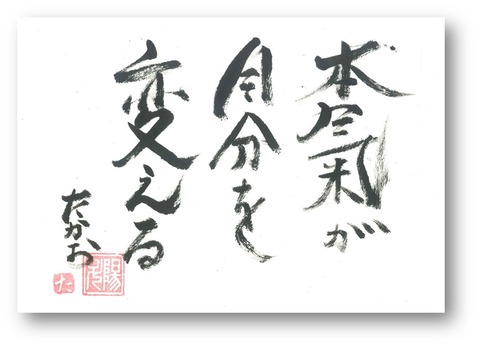 本氣が
自分を
変える
たかお
た